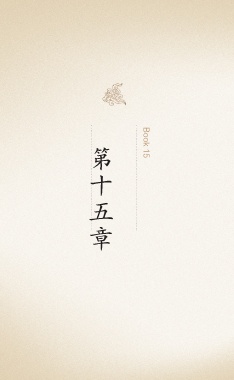 Book 15
第十五章